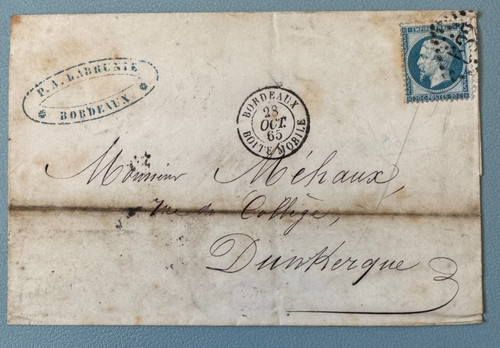 P. A. LABRUNIE
BORDEAUX.
BORDEAUX
28
OCT.
65
BOITE MOBILE
Monsieur Méhaux,
rue du Collège,
Dunkerque